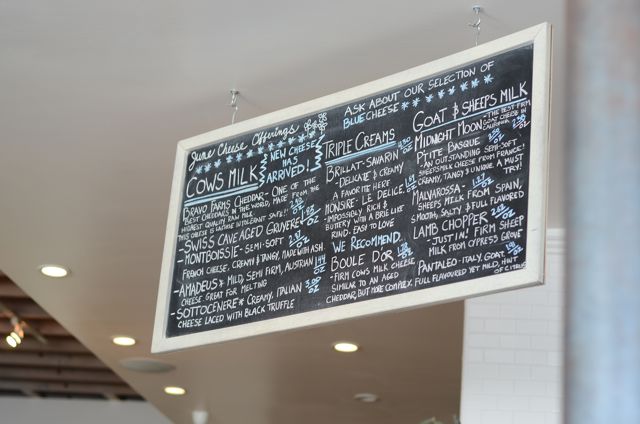 June Cheese Offerings
NEW CHEESE
HAS
ARRIVED!
COWS MILK
BRAVO FARMS CHEDDAR - ONE OF THE
BEST CHEDDARS IN THE WORLD, MADE FROM THE
HIGHEST QUALITY RAW MILK.
THIS CHEESE IS LACTOSE INTOLERANT SAFE!!
- SWISS CAVE AGED GRUYERE
- MONTBOISSIE - SEMI-SOFT
FRENCH CHEESE, CREAMY & TANGY, MADE WITH ASH
- AMADEUS * MILD, SEMI FIRM, AUSTRIAN
CHEESE GREAT FOR MELTING
- SOTTOCENERE * CREAMY, ITALIAN
CHEESE LACED WITH BLACK TRUFFLE
ASK ABOUT OUR SELECTION OF
BLUE CHEESE
TRIPLE CREAMS
BRILLAT-SAVARIN
- DELICATE & CREAMY
A FAVORITE HERE
MONSIRE LE DELICE
- IMPOSSIBLY RICH &
BUTTERY WITH A BRIE LIKE
RIND. EASY TO LOVE
WE RECOMMEND,
BOULE D'OR
- FIRM COWS MILK CHEESE
SIMILAR TO AN AGED
CHEDDAR, BUT MORE COMPLEX.
GOAT & SHEEPS MILK
MIDNIGHT MOON - THE BEST FIRM
GOAT CHEESE IN
CALIFORNIA
P'TITE BASQUE
- AN OUTSTANDING SEMI-SOFT
SHEEPS MILK CHEESE FROM FRANCE!
CREAMY, TANGY & UNIQUE. A MUST
TRY!
MALVAROSSA -
SHEEPS MILK FROM SPAIN,
SMOOTH, SALTY & FULL FLAVORED
LAMB CHOPPER
- JUST IN! FIRM SHEEP
MILK FROM CYPRESS GROVE
PANTALEO - ITALY, GOAT
FULL FLAVOURED YET MILD, HINT
OF CITRUS